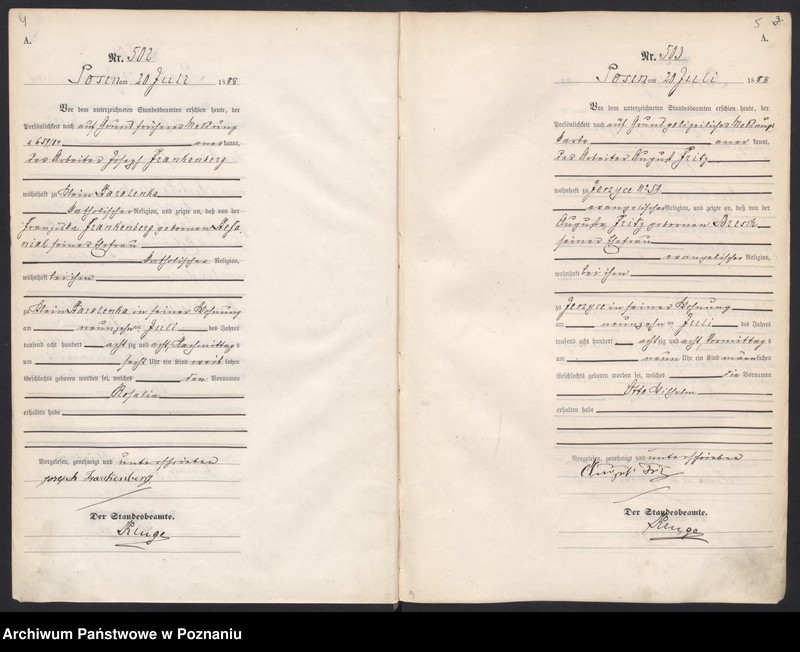 4
A.
Nr. 502
Posen am 20 Juli 1888
Vor dem unterzeichneten Standesbeamten erschien heute, der
Persönlichkeit nach auf Grund früherer Meldung
anerkannt,
der Arbeiter Joseph Frankenberg
wohnhaft zu Klein Starolenka
katholischer Religion, und zeigte an, daß von der
Franziska Frankenberg geborenen
seiner Ehefrau
katholischer Religion,
wohnhaft bei ihm
zu Klein Starolenka in seiner Wohnung
am neunzehnten Juli des Jahres
tausend acht hundert achtzig und acht, Nachmittags
um sechs Uhr ein Kind weiblichen
Geschlechts geboren worden sei, welches den Vornamen
Rosalie
erhalten habe
Vorgelesen, genehmigt und unterschrieben
Joseph Frankenberg
Der Standesbeamte.
5 3
A.
Nr. 503
Posen am 20 Juli 1888
Vor dem unterzeichneten Standesbeamten erschien heute, der
Persönlichkeit nach auf Grund polizeilicher Meldungs
karte anerkannt,
der Arbeiter August Fritz
wohnhaft zu Jerzyce No 59
evangelischer Religion, und zeigte an, daß von der
Auguste Fritz geborenen
seiner Ehefrau
evangelischer Religion,
wohnhaft bei ihm
zu Jerzyce in seiner Wohnung
am neunzehnten Juli des Jahres
tausend acht hundert achtzig und acht, Vormittags
um neun Uhr ein Kind männlichen
Geschlechts geboren worden sei, welches die Vornamen
Otto Wilhelm
erhalten habe
Vorgelesen, genehmigt und unterschrieben
August Fritz
Der Standesbeamte.
Archiwum Państwowe w Poznaniu